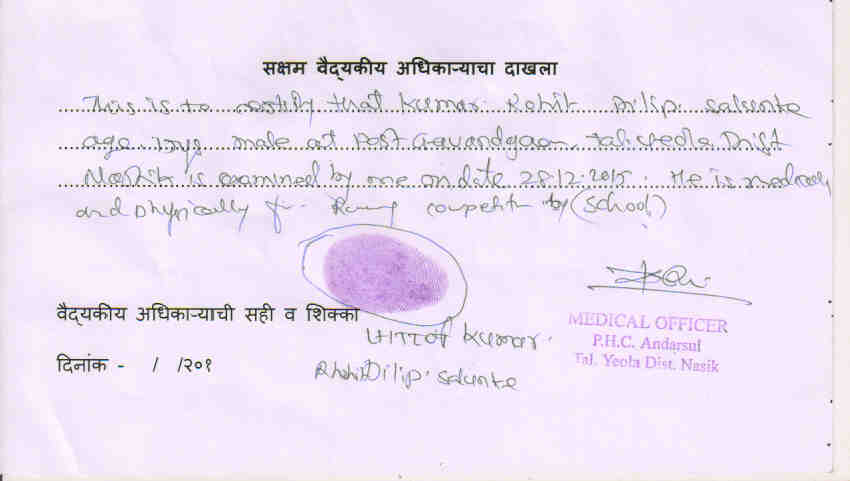 सक्षम वैद्यकीय अधिकाऱ्याचा दाखला
This is to certify that Kumar. Rohit Dilip. salunke
age male at Post Gavandgaon, Tal. Yeola Dist
Nashik is examined by me on date 28.12.2015. He is medically
and physically for Running by (School)
वैद्यकीय अधिकाऱ्याची सही व शिक्का
MEDICAL OFFICER
P.H.C. Andarsul
Tal. Yeola Dist. Nasik
LHTI of Kumar.
दिनांक - / /२०१
Rhohit Dilip. salunke